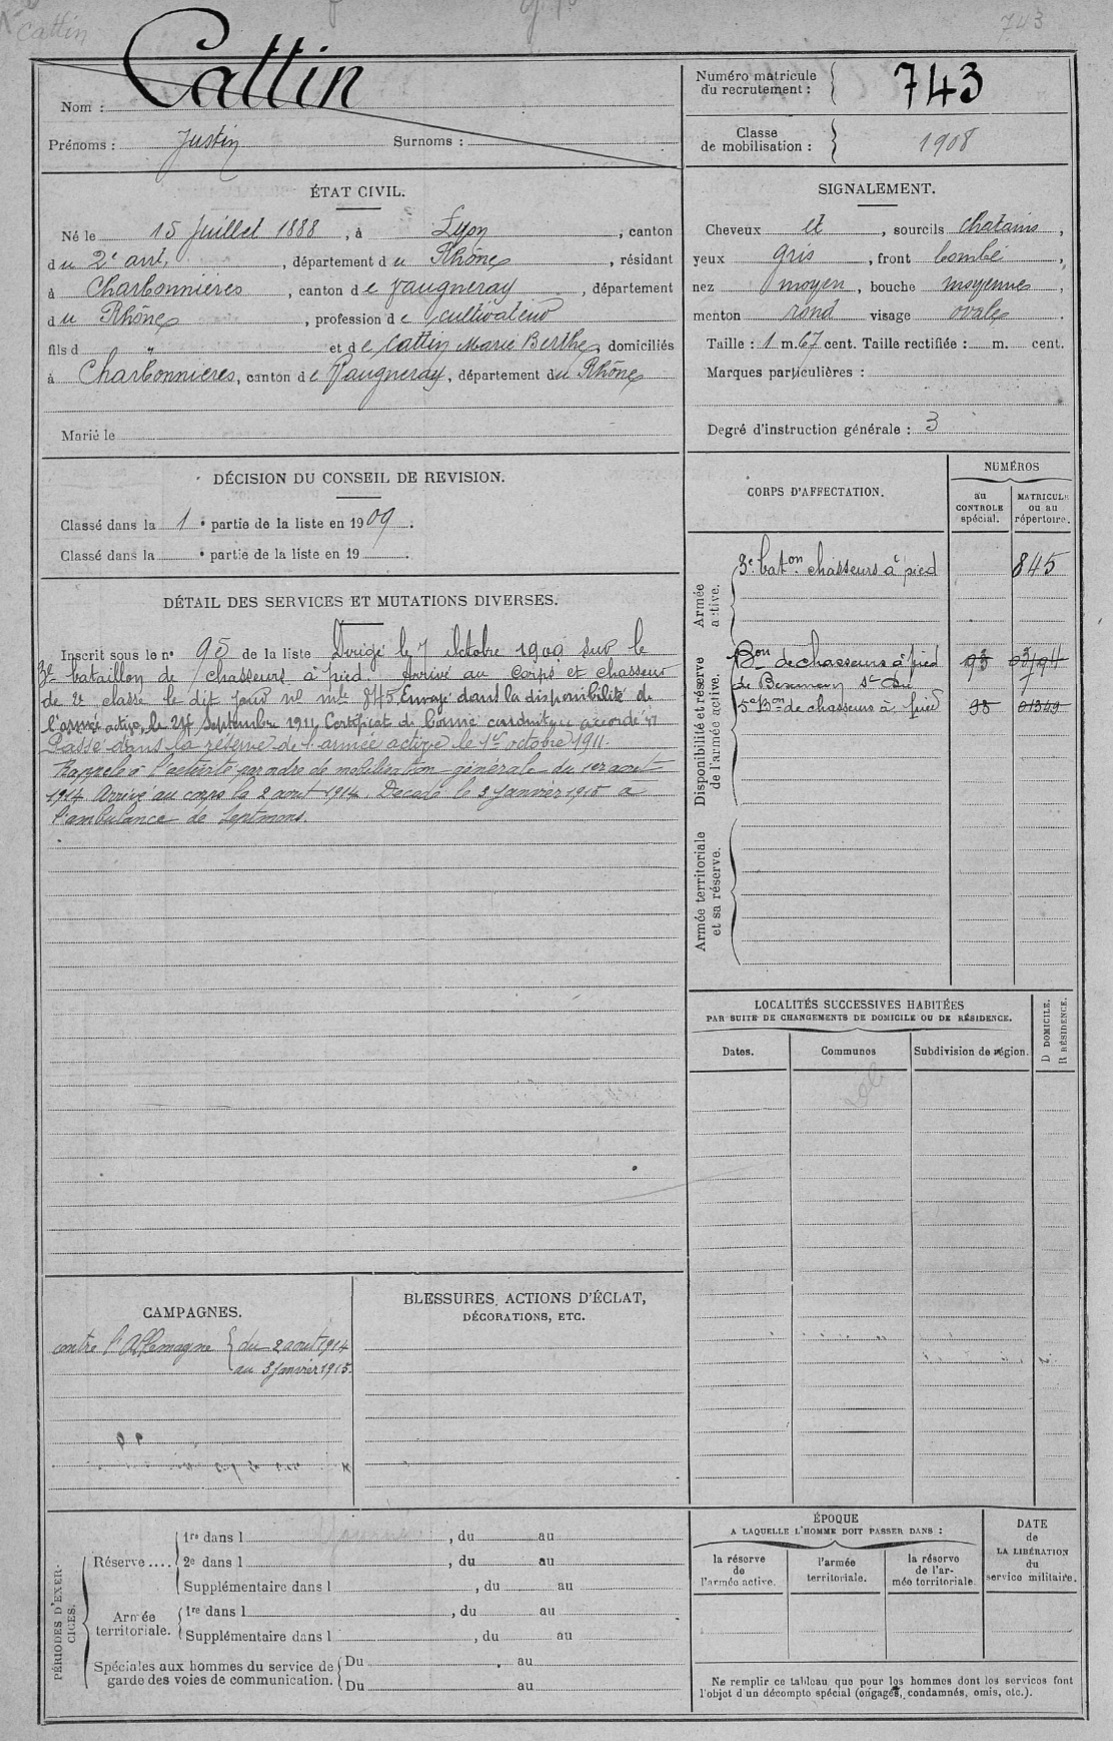 Cattin
743
Nom : Cattin
Prénoms : Justin Surnoms :
Numéro matricule
du recrutement : 743
Classe
de mobilisation : 1908
ÉTAT CIVIL.
Né le 15 Juillet 1888, à Lyon, canton
du 2e arrt, département du Rhône, résidant
à Charbonnières, canton de Vaugneray, département
du Rhône, profession de cultivateur
fils d " et de Cattin Marie Berthe, domiciliés
à Charbonnières, canton de Vaugneray, département du Rhône
Marié le
SIGNALEMENT.
Cheveux et, sourcils chatains,
yeux gris, front bombé,
nez moyen, bouche moyenne,
menton rond visage ovale.
Taille : 1 m. 67 cent. Taille rectifiée : m. cent.
Marques particulières :
Degré d'instruction générale : 3
DÉCISION DU CONSEIL DE REVISION.
Classé dans la 1 e partie de la liste en 1909.
Classé dans la e partie de la liste en 19 .
DÉTAIL DES SERVICES ET MUTATIONS DIVERSES.
Inscrit sous le n° 95 de la liste Dirigé le 7 Octobre 1909 sur le
3e bataillon de chasseurs à pied. Arrivé au Corps et chasseur
de 2e classe le dit jour no mle 845 Envoyé dans la disponibilité de
l'armée active, le 24 Septembre 1911 Certificat de bonne conduite accordé
Passé dans la réserve de l'armée active le 1er octobre 1911.
Rappelé à l'activité par ordre de mobilisation générale du 1er aout
1914. Arrivé au corps le 2 aout 1914. Décédé le 3 Janvier 1915 à
l'ambulance de Septmons.
CORPS D'AFFECTATION.
NUMÉROS
au
CONTROLE
spécial.
MATRICULE
ou au
répertoire.
Armée
active.
3e baton chasseurs à pied 845
Disponibilité et réserve
de l'armée active.
Bon de chasseurs à pied 93
de St Dié
5e Bon de chasseurs à pied 98 01349
Armée territoriale
et sa réserve.
LOCALITÉS SUCCESSIVES HABITÉES
PAR SUITE DE CHANGEMENTS DE DOMICILE OU DE RÉSIDENCE.
Dates.
Communes
Subdivision de région.
D DOMICILE.
R RÉSIDENCE.
CAMPAGNES.
contre l'Allemagne { du 2 aout 1914
au 3 Janvier 1915.
BLESSURES, ACTIONS D'ÉCLAT,
DÉCORATIONS, ETC.
PÉRIODES D'EXERCICES.
Réserve ....
1re dans l , du au
2e dans l , du au
Supplémentaire dans l , du au
Armée
territoriale.
1re dans l , du au
Supplémentaire dans l , du au
Spéciales aux hommes du service de
garde des voies de communication.
Du au
Du au
ÉPOQUE
A LAQUELLE L'HOMME DOIT PASSER DANS :
la réserve
de
l'armée active.
l'armée
territoriale.
la réserve
de l'ar-
mée territoriale.
DATE
de
LA LIBÉRATION
du
service militaire.
Ne remplir ce tableau que pour les hommes dont les services font
l'objet d'un décompte spécial (engagés, condamnés, omis, etc.).